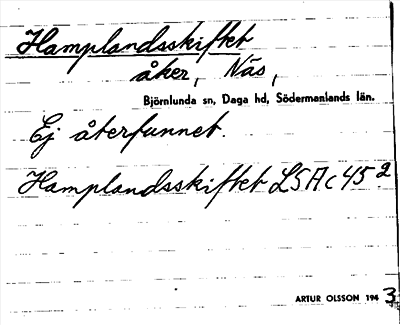 Hamplandsskiftet
åker, Näs,
Björnlunda sn, Daga hd, Södermanlands län.
Ej återfunnet.
Hamplandsskiftet LSA C45²
ARTUR OLSSON 1943